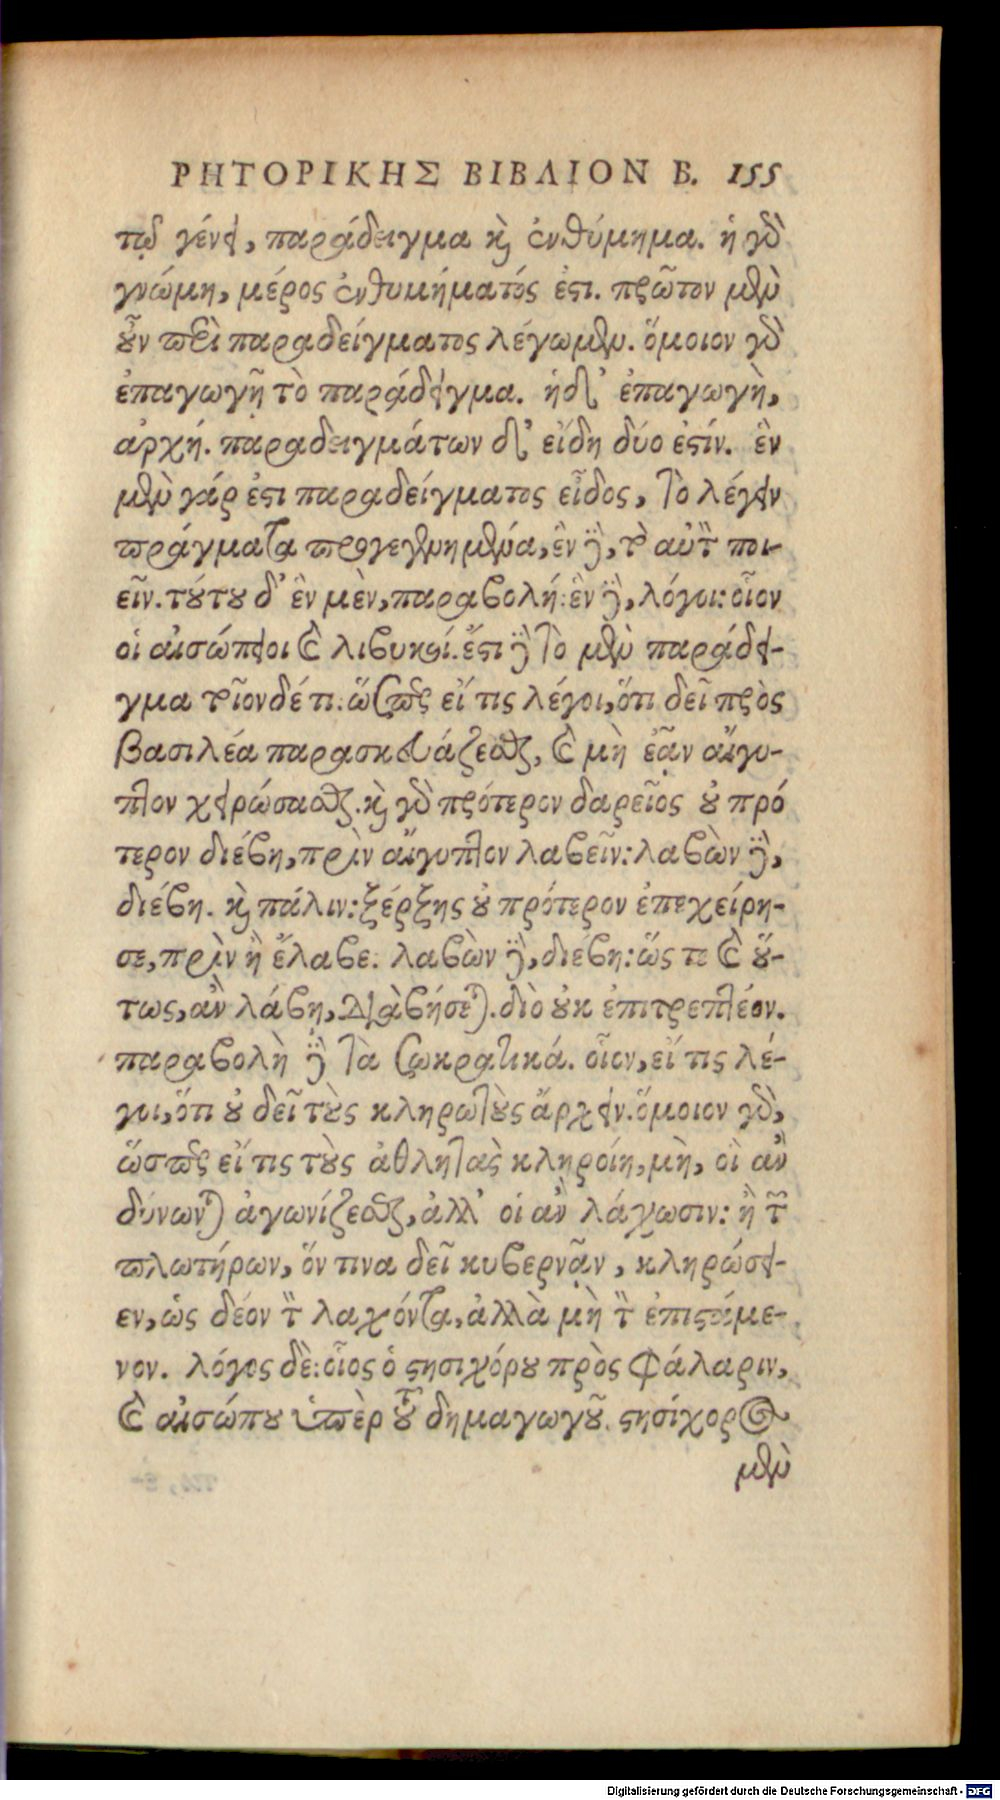 ΡΗΤΟΡΙΚΗΣ ΒΙΒΛΙΟΝ Β. 155
τῷ γένει, παράδειγμα καὶ ἐνθύμημα. ἡ γὰρ
γνώμη, μέρος ἐνθυμήματός ἐστι. πρῶτον μὲν
οὖν περὶ παραδείγματος λέγωμεν. ὅμοιον γὰρ
ἐπαγωγῇ τὸ παράδειγμα. ἡ δ' ἐπαγωγὴ,
ἀρχή. παραδειγμάτων δ' εἴδη δύο ἐστίν. ἓν
μὲν γάρ ἐστι παραδείγματος εἶδος, τὸ λέγειν
πράγματα προγεγενημένα, ἓν δὲ, τὸ αὐτὸν ποι-
εῖν. τούτου δ' ἓν μὲν, παραβολή: ἓν δὲ, λόγοι: οἷον
οἱ αἰσώπειοι καὶ λιβυκοί. ἔστι δὲ τὸ μὲν παράδει-
γμα τοῖον δέ τι: ὥσπερ εἴ τις λέγοι, ὅτι δεῖ πρὸς
βασιλέα παρασκευάζεσθαι, καὶ μὴ ἐᾷν αἴγυ-
πτον χειρώσασθαι. καὶ γὰρ πρότερον δαρεῖος οὐ πρό
τερον διέβη, πρὶν αἴγυπτον λαβεῖν: λαβὼν δὲ,
διέβη. καὶ πάλιν: ξέρξης οὐ πρότερον ἐπεχείρη-
σε, πρὶν ἢ ἔλαβε: λαβὼν δὲ, διέβη: ὥστε καὶ οὕ-
τως, ἂν λάβη, διαβήσεται. διὸ οὐκ ἐπιτρεπτέον.
παραβολὴ δὲ τὰ σωκρατικά. οἷον, εἴ τις λέ-
γοι, ὅτι οὐ δεῖ τοὺς κληρωτοὺς ἄρχειν. ὅμοιον γὰρ,
ὥσπερ εἴ τις τοὺς ἀθλητὰς κληροίη, μὴ, οἳ ἂν
δύνωνται ἀγωνίζεσθαι, ἀλλ' οἱ ἂν λάχωσιν: ἢ τῶν
πλωτήρων, ὅν τινα δεῖ κυβερνᾷν, κληρώσει-
εν, ὡς δέον τὸν λαχόντα, ἀλλὰ μὴ τὸν ἐπιστάμε-
νον. λόγος δὲ: οἷος ὁ στησιχόρου πρὸς Φάλαριν,
καὶ αἰσώπου ὑπὲρ τοῦ δημαγωγοῦ. στησίχορος
μὲν
Digitalisierung gefördert durch die Deutsche Forschungsgemeinschaft - DFG